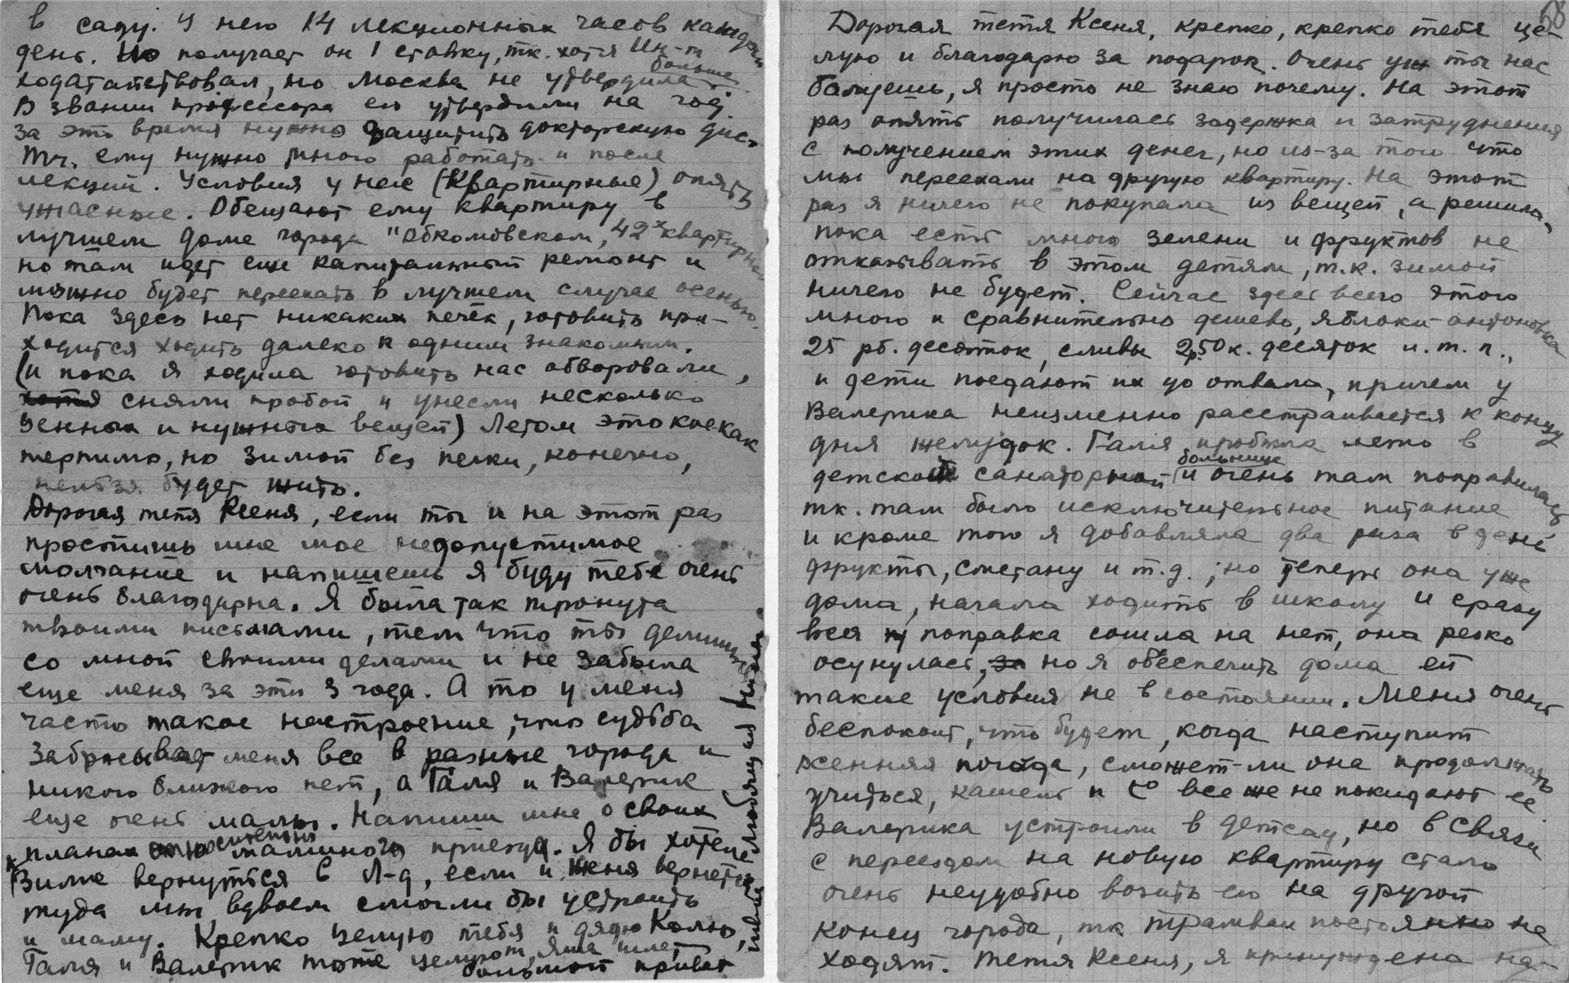 в саду. У него 14 лекционных часов каждый
день. Но получает он 1 ставку, тк. хотя Ин-т
ходатайствовал, но Москва не утвердила больше.
В звании профессора его утвердили на год
за это время нужно защитить докторскую дис.
Тч. ему нужно много работать и после
лекций. Условия у нее (квартирные) опять
ужасные. Обещают ему квартиру в
лучшем доме города "Обкомовском, 42х квартирном
но там идет еще капитальный ремонт и
можно будет переехать в лучшем случае осенью.
Пока здесь нет никаких печек, готовить при-
ходится ходить далеко к одним знакомым.
(и пока я ходила готовить нас обворовали,
хотя сняли пробой и унесли несколько
ценных и нужных вещей) Летом это кое как
терпимо, но зимой без печки, конечно,
нельзя будет жить.
Дорогая тетя Ксеня, если ты и на этот раз
простишь мне мое недопустимое
молчание и напишешь я буду тебе очень
очень благодарна. Я была так тронута
твоими письмами, тем что ты делишься
со мной своими делами и не забыла
еще меня за эти 3 года. А то у меня
часто такое настроение, что судьба
забрасывает меня все в разные города и
никого близкого нет, а Галя и Валерик
еще очень малы. Напиши мне о своих
планах относительно маминого приезда. Я бы хотела
зимой вернуться в Л-д, если и Женя вернется
туда мы вдвоем смогли бы устроить
и маму. Крепко целую тебя и дядю Колю,
Галя и Валерик тоже целуют, Яша шлет
большой привет
любящая
58
Дорогая тетя Ксеня, крепко, крепко тебя це-
лую и благодарю за подарок. Очень уж ты нас
балуешь, я просто не знаю почему. На этот
раз опять получилась задержка и затруднения
с получением этих денег, но из-за того что
мы переехали на другую квартиру. На этот
раз я ничего не покупала из вещей, а решила,
пока есть много зелени и фруктов не
отказывать в этом детям, т.к. зимой
ничего не будет. Сейчас здесь всего этого
много и сравнительно дешево, яблоки-антоновка
25 рб. десяток, сливы 2,50к. десяток и. т. п.,
и дети поедают их до отвала, причем у
Валерика неизменно расстраивается к концу
дня желудок. Галя пробыла лето в
детской санаторной больнице и очень там поправилась
тк. там было исключительное питание
и кроме того я добавляла два раза в день
фрукты, сметану и т.д.; но теперь она уже
дома, начала ходить в школу и сразу
вся поправка сошла на нет, она резко
осунулась, но я обеспечить дома ей
такие условия не в состоянии. Меня очень
беспокоит, что будет, когда наступит
осенняя погода, сможет-ли она продолжать
учиться, кашель и t° все же не покидают ее
Валерика устроили в детсад, но в связи
с переездом на новую квартиру стало
очень неудобно возить его на другой
конец города, тк трамваи постоянно не
ходят. Тетя Ксеня, я принуждена на-